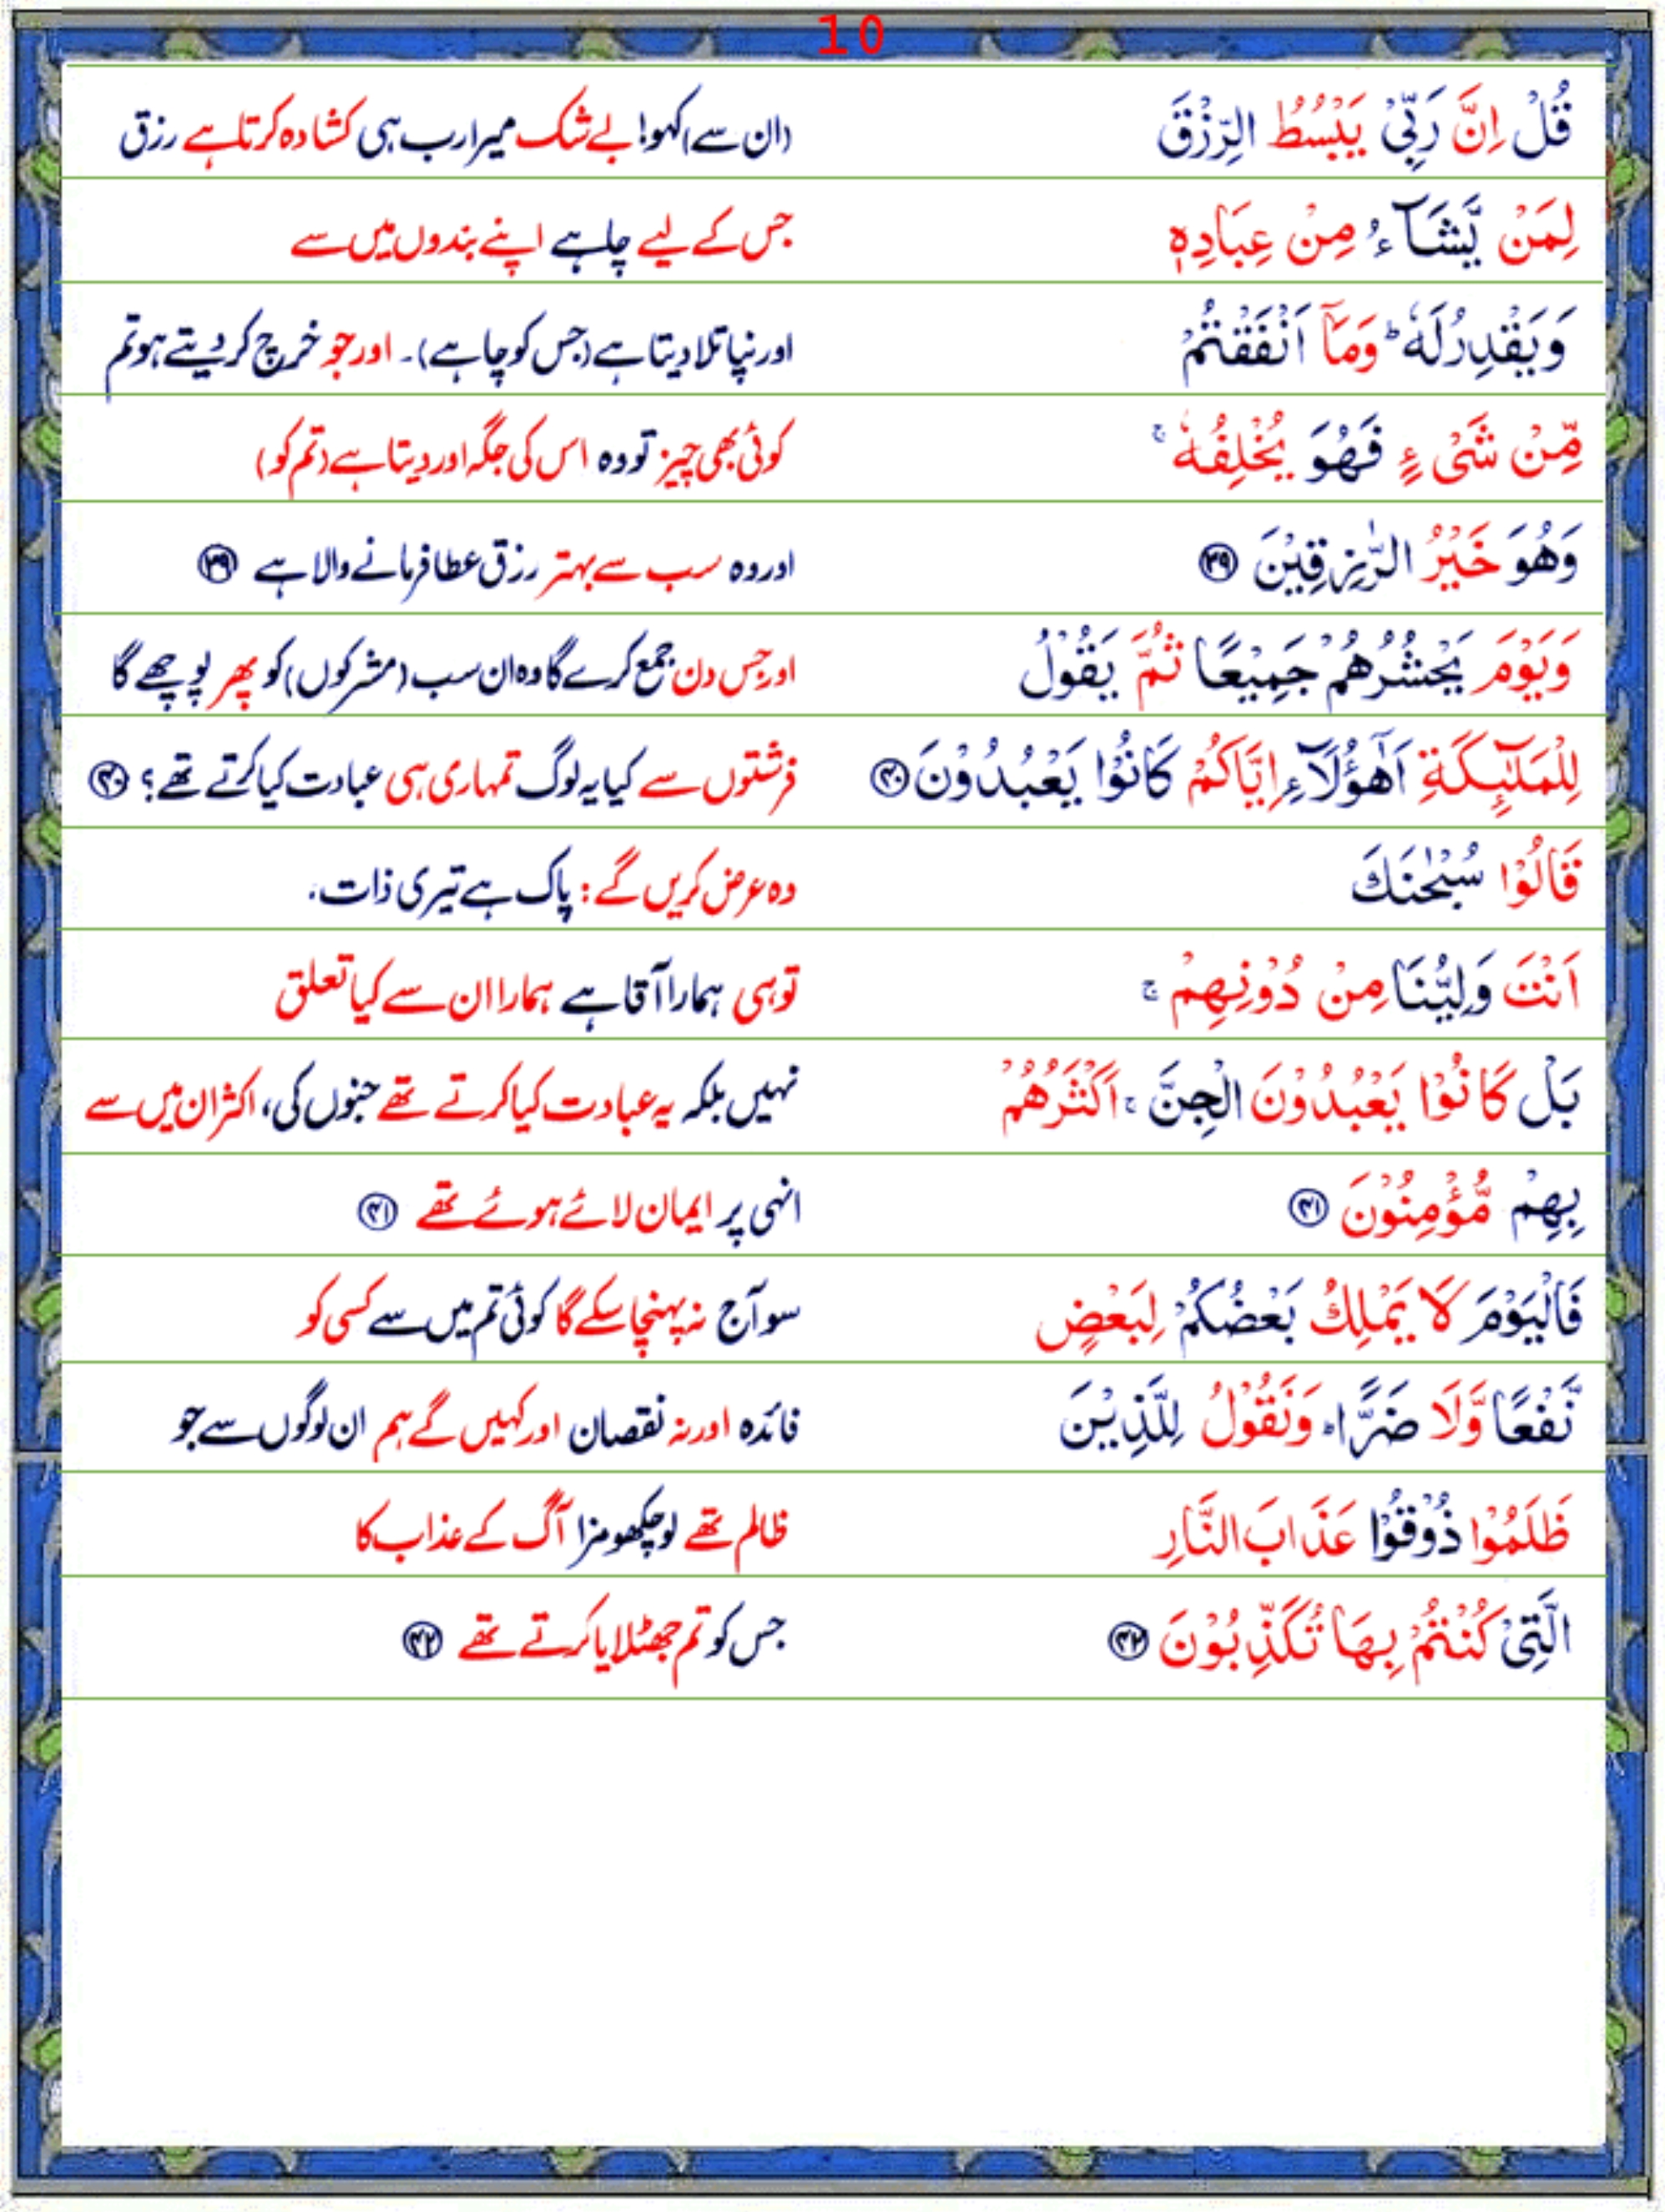 10
قُلْ اِنَّ رَبِّیْ یَبْسُطُ الرِّزْقَ (ان سے) کہو! بے شک میرا رب ہی کشادہ کرتا ہے رزق
لِمَنْ یَّشَآءُ مِنْ عِبَادِہٖ جس کے لیے چاہے اپنے بندوں میں سے
وَیَقْدِرُ لَہٗ ؕ وَمَاۤ اَنْفَقْتُمْ اور نپا تلا دیتا ہے (جس کو چاہے)۔ اور جو خرچ کر دیتے ہو تم
مِّنْ شَیْءٍ فَہُوَ یُخْلِفُہٗ ۚ کوئی بھی چیز تو وہ اس کی جگہ اور دیتا ہے (تم کو)
وَہُوَ خَیْرُ الرّٰزِقِیْنَ ﴿۳۹﴾ اور وہ سب سے بہتر رزق عطا فرمانے والا ہے ﴿۳۹﴾
وَیَوْمَ یَحْشُرُہُمْ جَمِیْعًا ثُمَّ یَقُوْلُ اور جس دن جمع کرے گا وہ ان سب (مشرکوں) کو پھر پوچھے گا
لِلْمَلٰٓئِکَۃِ اَہٰۤؤُلَآءِ اِیَّاکُمْ کَانُوْا یَعْبُدُوْنَ ﴿۴۰﴾ فرشتوں سے کیا یہ لوگ تمہاری ہی عبادت کیا کرتے تھے؟ ﴿۴۰﴾
قَالُوْا سُبْحٰنَکَ وہ عرض کریں گے: پاک ہے تیری ذات،
اَنْتَ وَلِیُّنَا مِنْ دُوْنِہِمْ ۚ تو ہی ہمارا آقا ہے ہمارا ان سے کیا تعلق
بَلْ کَانُوْا یَعْبُدُوْنَ الْجِنَّ ۚ اَکْثَرُہُمْ نہیں بلکہ یہ عبادت کیا کرتے تھے جنوں کی، اکثر ان میں سے
بِہِمْ مُّؤْمِنُوْنَ ﴿۴۱﴾ انہی پر ایمان لائے ہوئے تھے ﴿۴۱﴾
فَالْیَوْمَ لَا یَمْلِکُ بَعْضُکُمْ لِبَعْضٍ سو آج نہ پہنچا سکے گا کوئی تم میں سے کسی کو
نَّفْعًا وَّلَا ضَرًّا ؕ وَنَقُوْلُ لِلَّذِیْنَ فائدہ اور نہ نقصان اور کہیں گے ہم ان لوگوں سے جو
ظَلَمُوْا ذُوْقُوْا عَذَابَ النَّارِ ظالم تھے لو چکھو مزا آگ کے عذاب کا
الَّتِیْ کُنْتُمْ بِہَا تُکَذِّبُوْنَ ﴿۴۲﴾ جس کو تم جھٹلایا کرتے تھے ﴿۴۲﴾